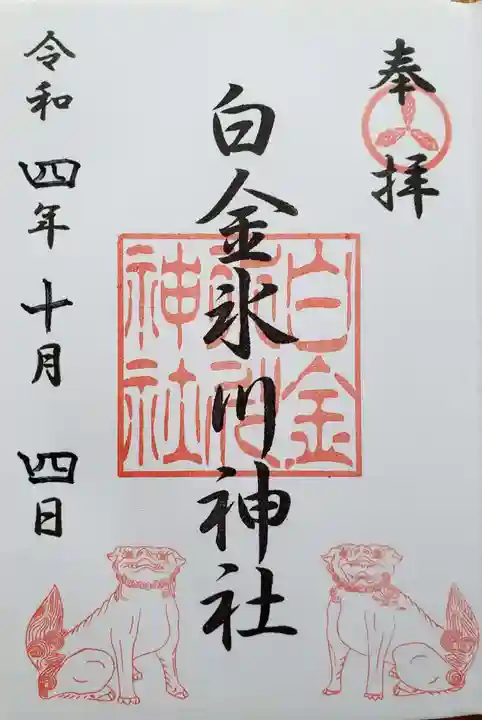 奉拝
白金氷川神社
白金
氷川
神社
令和四年十月四日